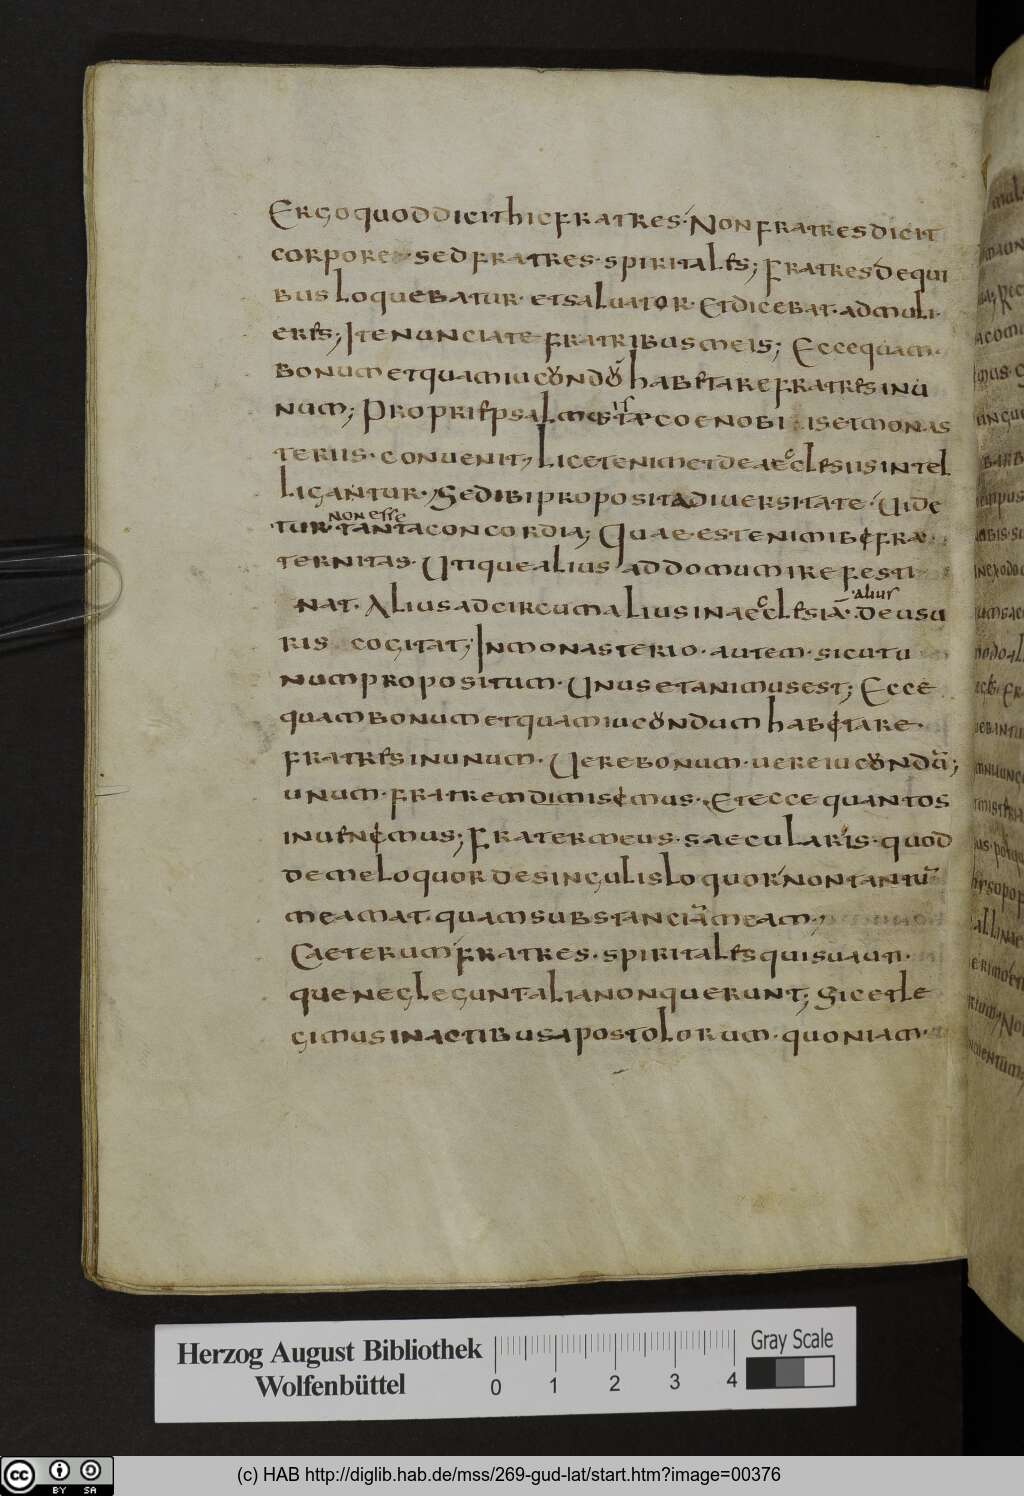 Ergo quod dicit hic fratres· Non fratres dicit
corpore· sed fratres· spiritales; fratres de qui
bus loquebatur· et saluator· Et dicebat· ad muli
eres; Ite nunciate fratribus meis; Ecce quam·
bonum et quam iucondom habetare fratres inu
num; Proprie psalmus iste coenobiis et monas
teriis· conuenit; Licet enim et de aecclesiis intel
ligantur; Sed ibi proposita diuersitate· Uide
tur· non esse tanta concordia; Quae est enim ibe frae
ternitas· Utique alius ad domum ire festi
nat· Alius ad circum alius in aecclesiā· alius de usu
ris cogitat; In monasterio· autem· sicut u
num propositum· Unus et animus est; Ecce
quam bonum et quam iucondum habetare·
fratres in unum· Uere bonum· uere iucondū;
unum· fratrem dimisemus· Et ecce quantos
inuenemus; Frater meus· saecularis· quod
de me loquor de singulis loquor· non tantū
me amat· quam substanciā meam;
Caeterum fratres· spiritales qui sua uti·
que neglegunt aliā non querunt; Sic et le
gimus in actibus apostolorum· quoniam·
Herzog August Bibliothek
Wolfenbüttel
0 1 2 3 4
Gray Scale
cc BY SA
(c) HAB http://diglib.hab.de/mss/269-gud-lat/start.htm?image=00376